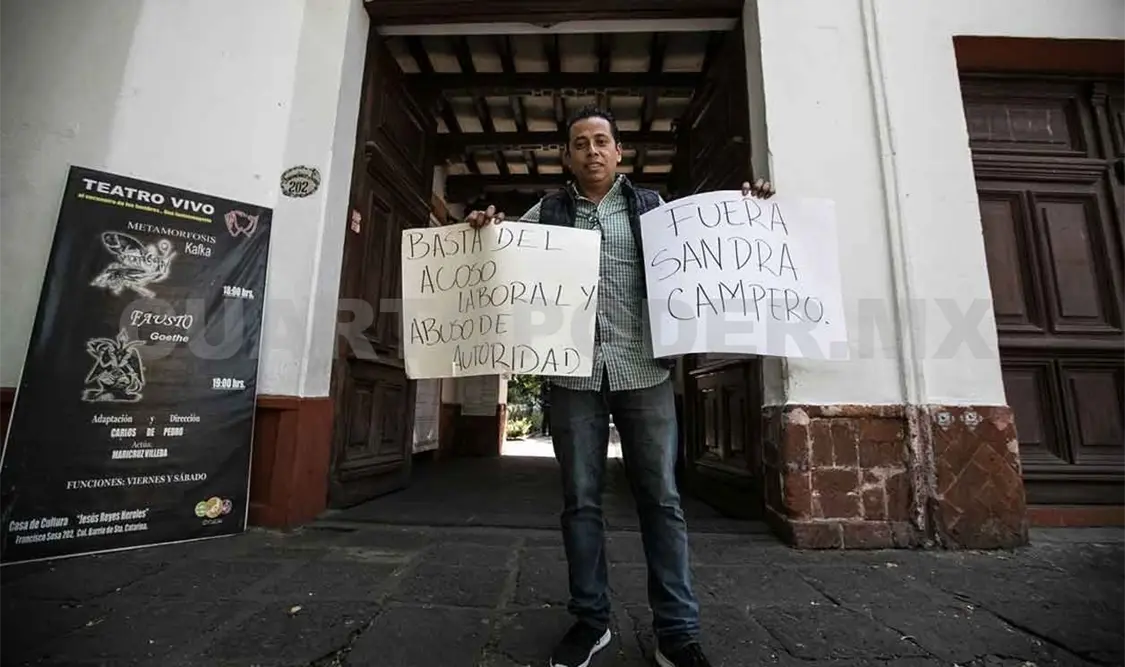 TEATRO VIVO
METAMORFOSIS
Kafka
18:00 hrs.
FAUSTO
Goethe
19:00 hrs.
Adaptación y Dirección
CARLOS DE PEDRO
Actúa:
MARICRUZ VILLEDA
FUNCIONES: VIERNES Y SÁBADO
Casa de Cultura "Jesús Reyes Heroles"
Francisco Sosa 202, Col. Barrio de Sta. Catarina.
202
BASTA DEL
ACOSO
LABORAL Y
ABUSO DE
AUTORIDAD
FUERA
SANDRA
CAMPERO.
CUARTOPODER.MX